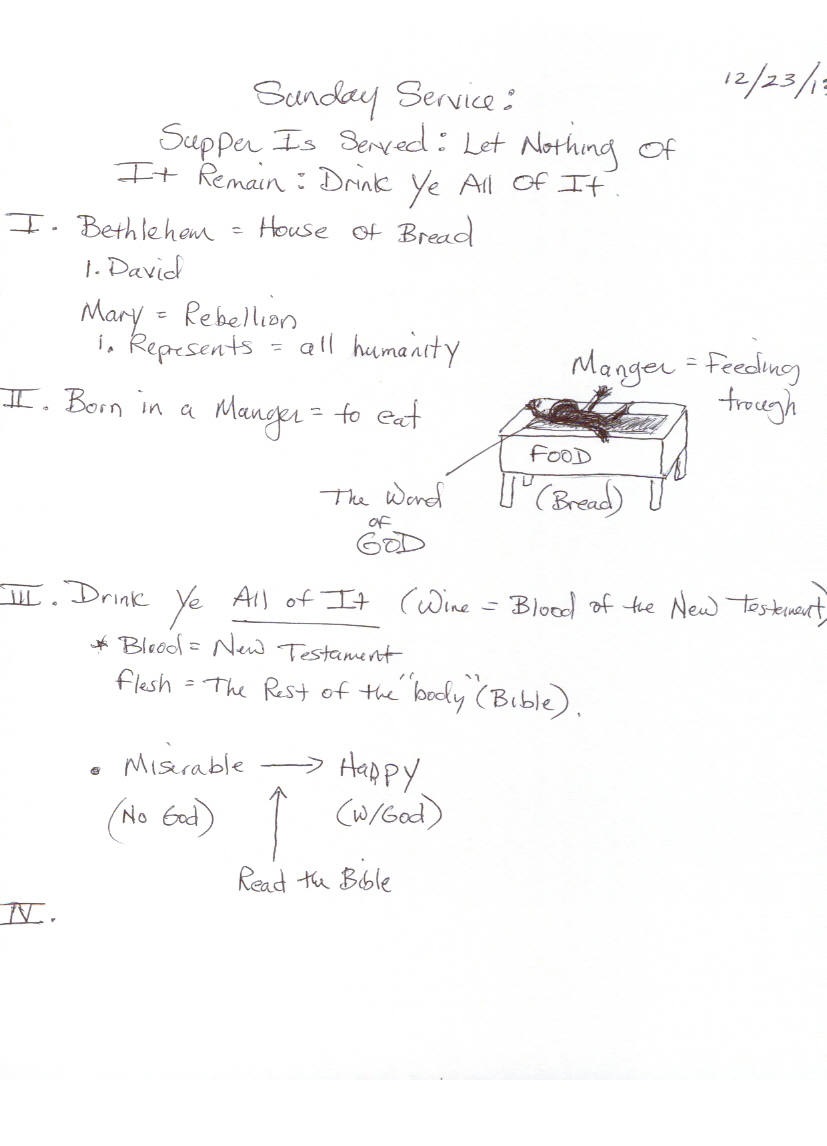 12/23/1
Sunday Service:
Supper Is Served: Let Nothing Of
It Remain: Drink Ye All Of It.
I. Bethlehem = House of Bread
1. David
Mary = Rebellion
1. Represents = all humanity
Manger = Feeding
trough
II. Born in a Manger = to eat
FOOD
(Bread)
The Word
of
GOD
III. Drink Ye All of It (Wine = Blood of the New Testement)
* Blood = New Testament
flesh = The Rest of the "body" (Bible).
• Miserable → Happy
(No God) (W/God)
Read the Bible
IV.